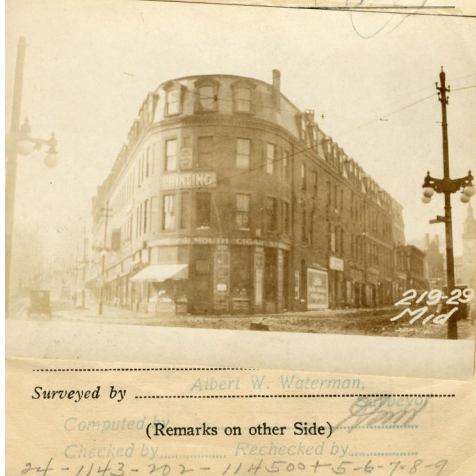 PRINTING
MOUTH CIGAR
219-29
Mid
Surveyed by
Albert W. Waterman,
Surveyor
Computed by
(Remarks on other Side)
Checked by
Rechecked by
24 - 1143 - 202 - 114500 + 5-6-7-8-9